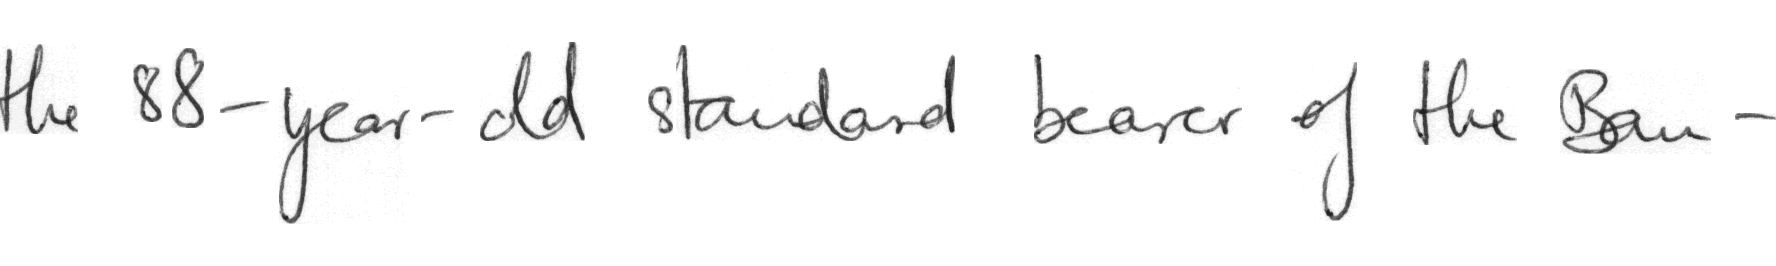 the 88-year-old standard bearer of the Ban-